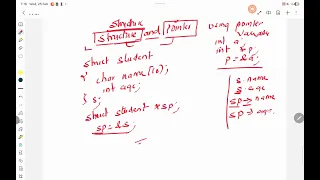 Structure
Structure and Pointer
struct student
{ char name[10];
int age;
} s;
struct student *sp;
sp = &s;
using pointer
variable
int a;
int *p;
p = &a;
s.name
s.age
sp → name
sp → age.